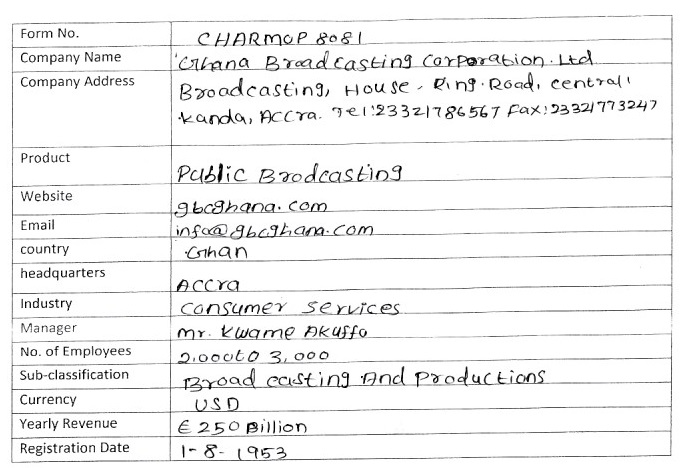 Form No. CHARMOP 8081
Company Name Ghana Broadcasting Corporation. Ltd
Company Address Broadcasting, House, Ring. Road, central,
Kanda, Accra. Tel:23321786567 Fax:23321773247
Product Public Brodcasting
Website gbcghana.com
Email infoo@gbcghana.com
country Ghan
headquarters Accra
Industry Consumer Services
Manager Mr. Kwame Akuffo
No. of Employees 2,000to 3,000
Sub-classification Broad casting And Productions
Currency USD
Yearly Revenue € 250 Billion
Registration Date 1-8-1953